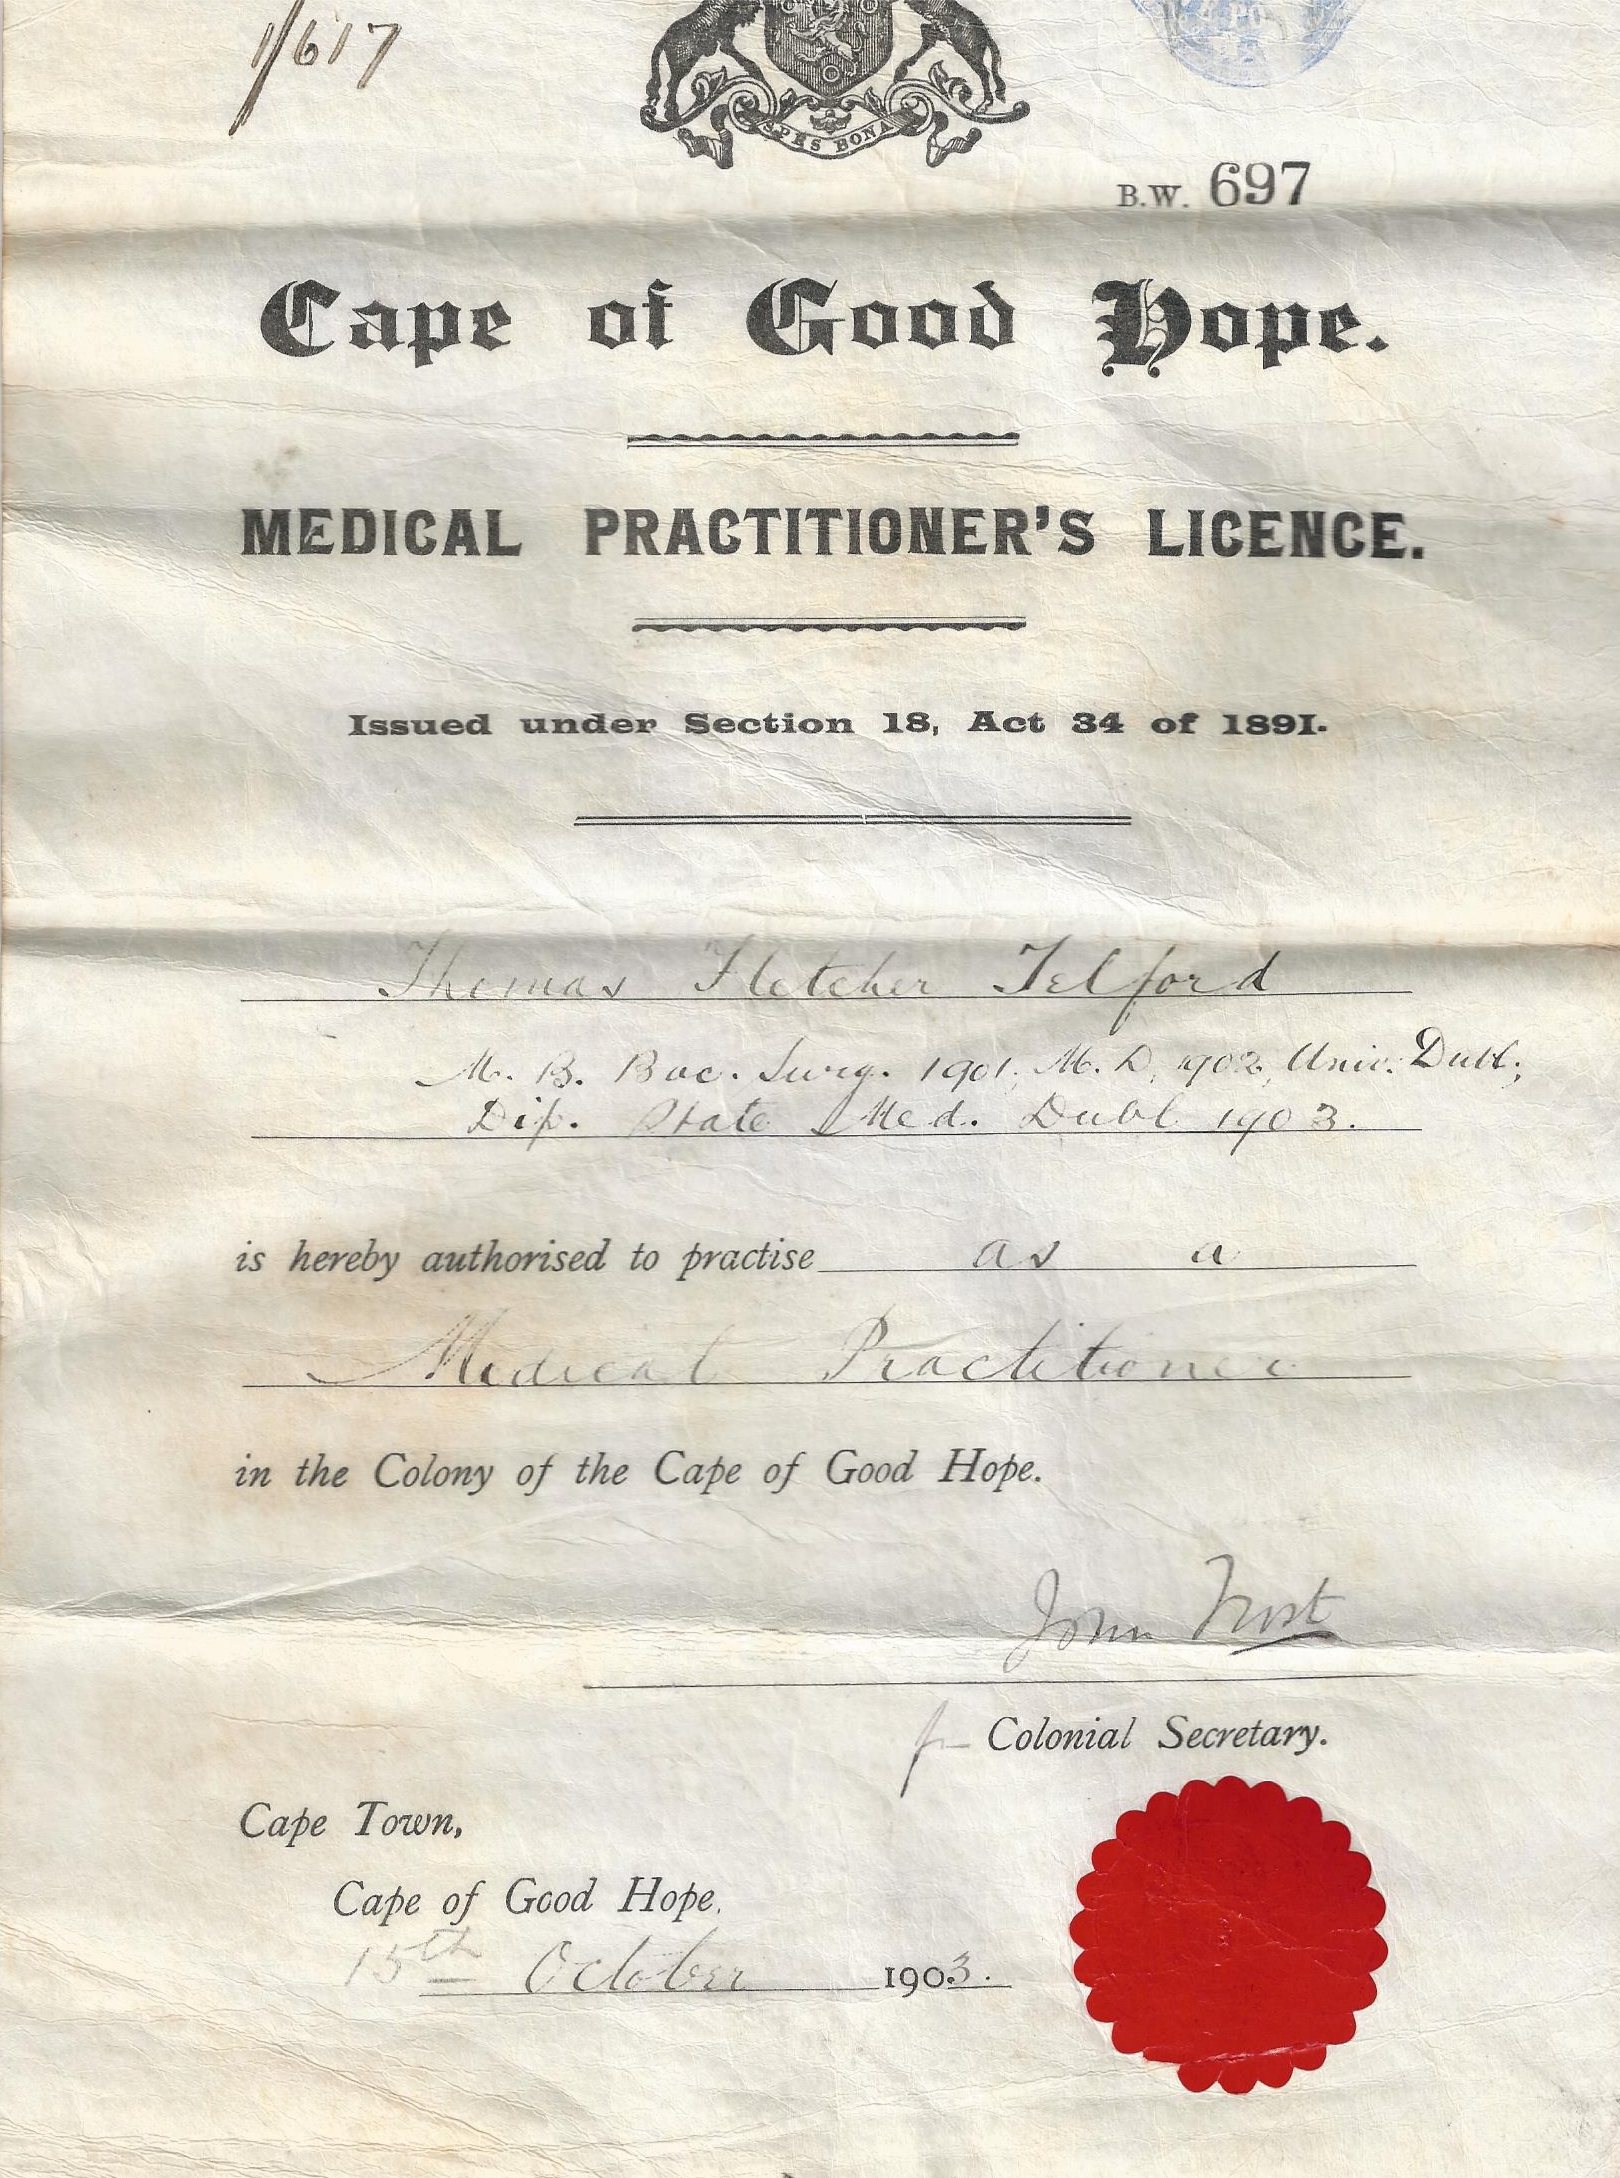 1/617
SPES BONA
B.W. 697
Cape of Good Hope.
MEDICAL PRACTITIONER'S LICENCE.
Issued under Section 18, Act 34 of 1891.
Thomas Fletcher Telford
M. B. Bac. Surg. 1901, M. D. 1902, Univ. Dubl;
Dip. State Med. Dubl 1903.
is hereby authorised to practise as a
Medical Practitioner
in the Colony of the Cape of Good Hope.
John Frost
for Colonial Secretary.
Cape Town,
Cape of Good Hope,
15th October 1903.